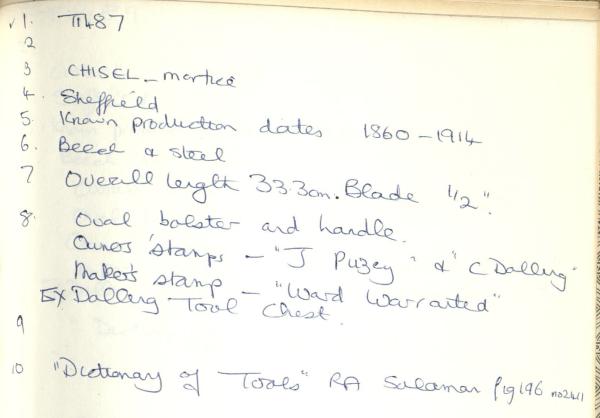 ✓ 1. TI487
2
3 CHISEL - mortice
4. Sheffield
5. Known production dates 1860-1914
6. Beech & steel
7 Overall length 33.3cm. Blade 1/2".
8. Oval bolster and handle.
Owners stamps - "J Puzey" & "C Dalling"
Maker's stamp - "Ward Warranted"
Ex Dalling Tool Chest.
9
10 "Dictionary of Tools" RA Salaman fig 196